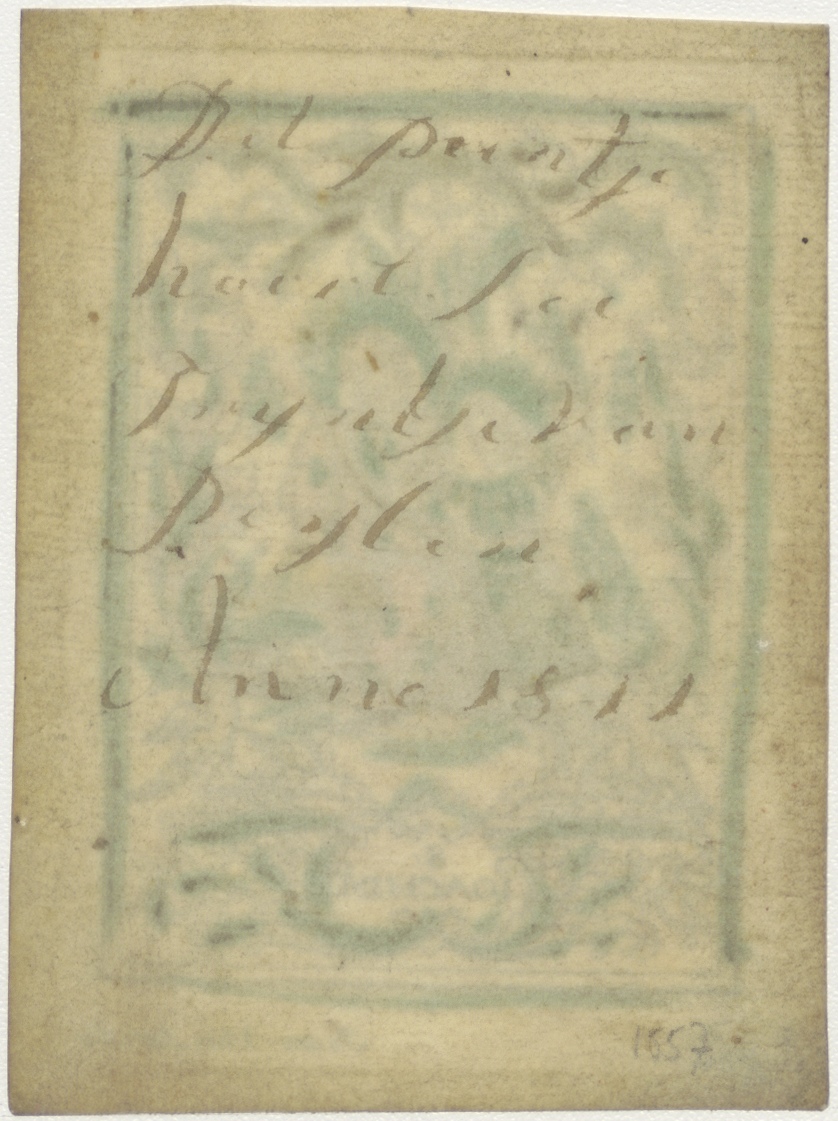 Dit prentje
hoort Toe
Tryntje Van
Reylen
Anno 1811
1657